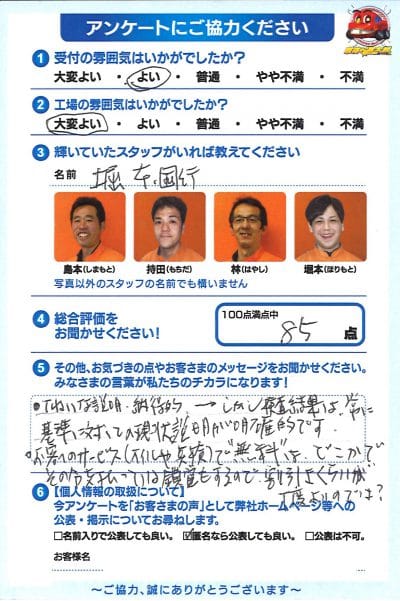 アンケートにご協力ください
1 受付の雰囲気はいかがでしたか?
大変よい ・ よい ・ 普通 ・ やや不満 ・ 不満
2 工場の雰囲気はいかがでしたか?
大変よい ・ よい ・ 普通 ・ やや不満 ・ 不満
3 輝いていたスタッフがいれば教えてください
名前 堀本
島本(しまもと) 持田(もちだ) 林(はやし) 堀本(ほりもと)
写真以外のスタッフの名前でも構いません
4 総合評価を
お聞かせください!
100点満点中
85 点
5 その他、お気づきの点やお客さまのメッセージをお聞かせください。
みなさまの言葉が私たちのチカラになります!
・ていねいな説明・納得的 → しかし 結果は、常に
基準に対しての現状説明が明確的です。
・お客へのサービス( )で"無料"は、どこかで
その分支払っている錯覚もするので、割引きくらいが
丁度よいのでは?
6 【個人情報の取扱について】
今アンケートを「お客さまの声」として弊社ホームページ等への
公表・掲示についてお尋ねします。
□名前入りで公表しても良い。 ☑匿名なら公表しても良い。 □公表は不可。
お客様名
~ご協力、誠にありがとうございます~